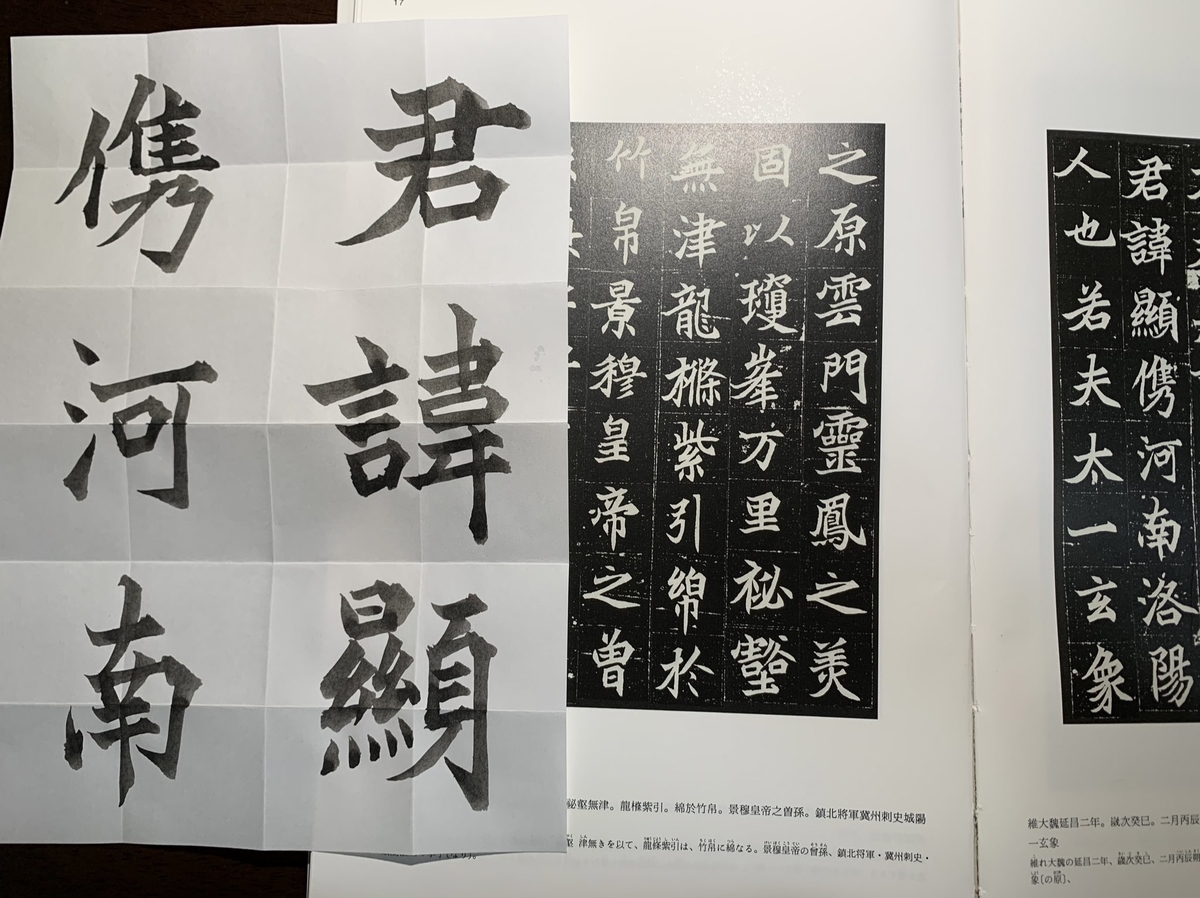 君諱顯
㑺河南
17
君諱顯㑺河南洛陽
人也若夫太一玄象
之原雲門靈鳳之美
固以瓊峯万里祕壑
無津龍樤紫引綿於
竹帛景穆皇帝之曽
維大魏延昌二年。歲次癸巳。二月丙辰
一玄象
維れ大魏の延昌二年、歲次癸巳、二月丙辰
象〔の原〕、
祕壑無津。龍樤紫引。綿於竹帛。景穆皇帝之曽孫。鎮北將軍冀州刺史城陽
壑津無きを以て、龍樤紫引は、竹帛に綿なる。景穆皇帝の曾孫、鎮北将軍・冀州刺史・